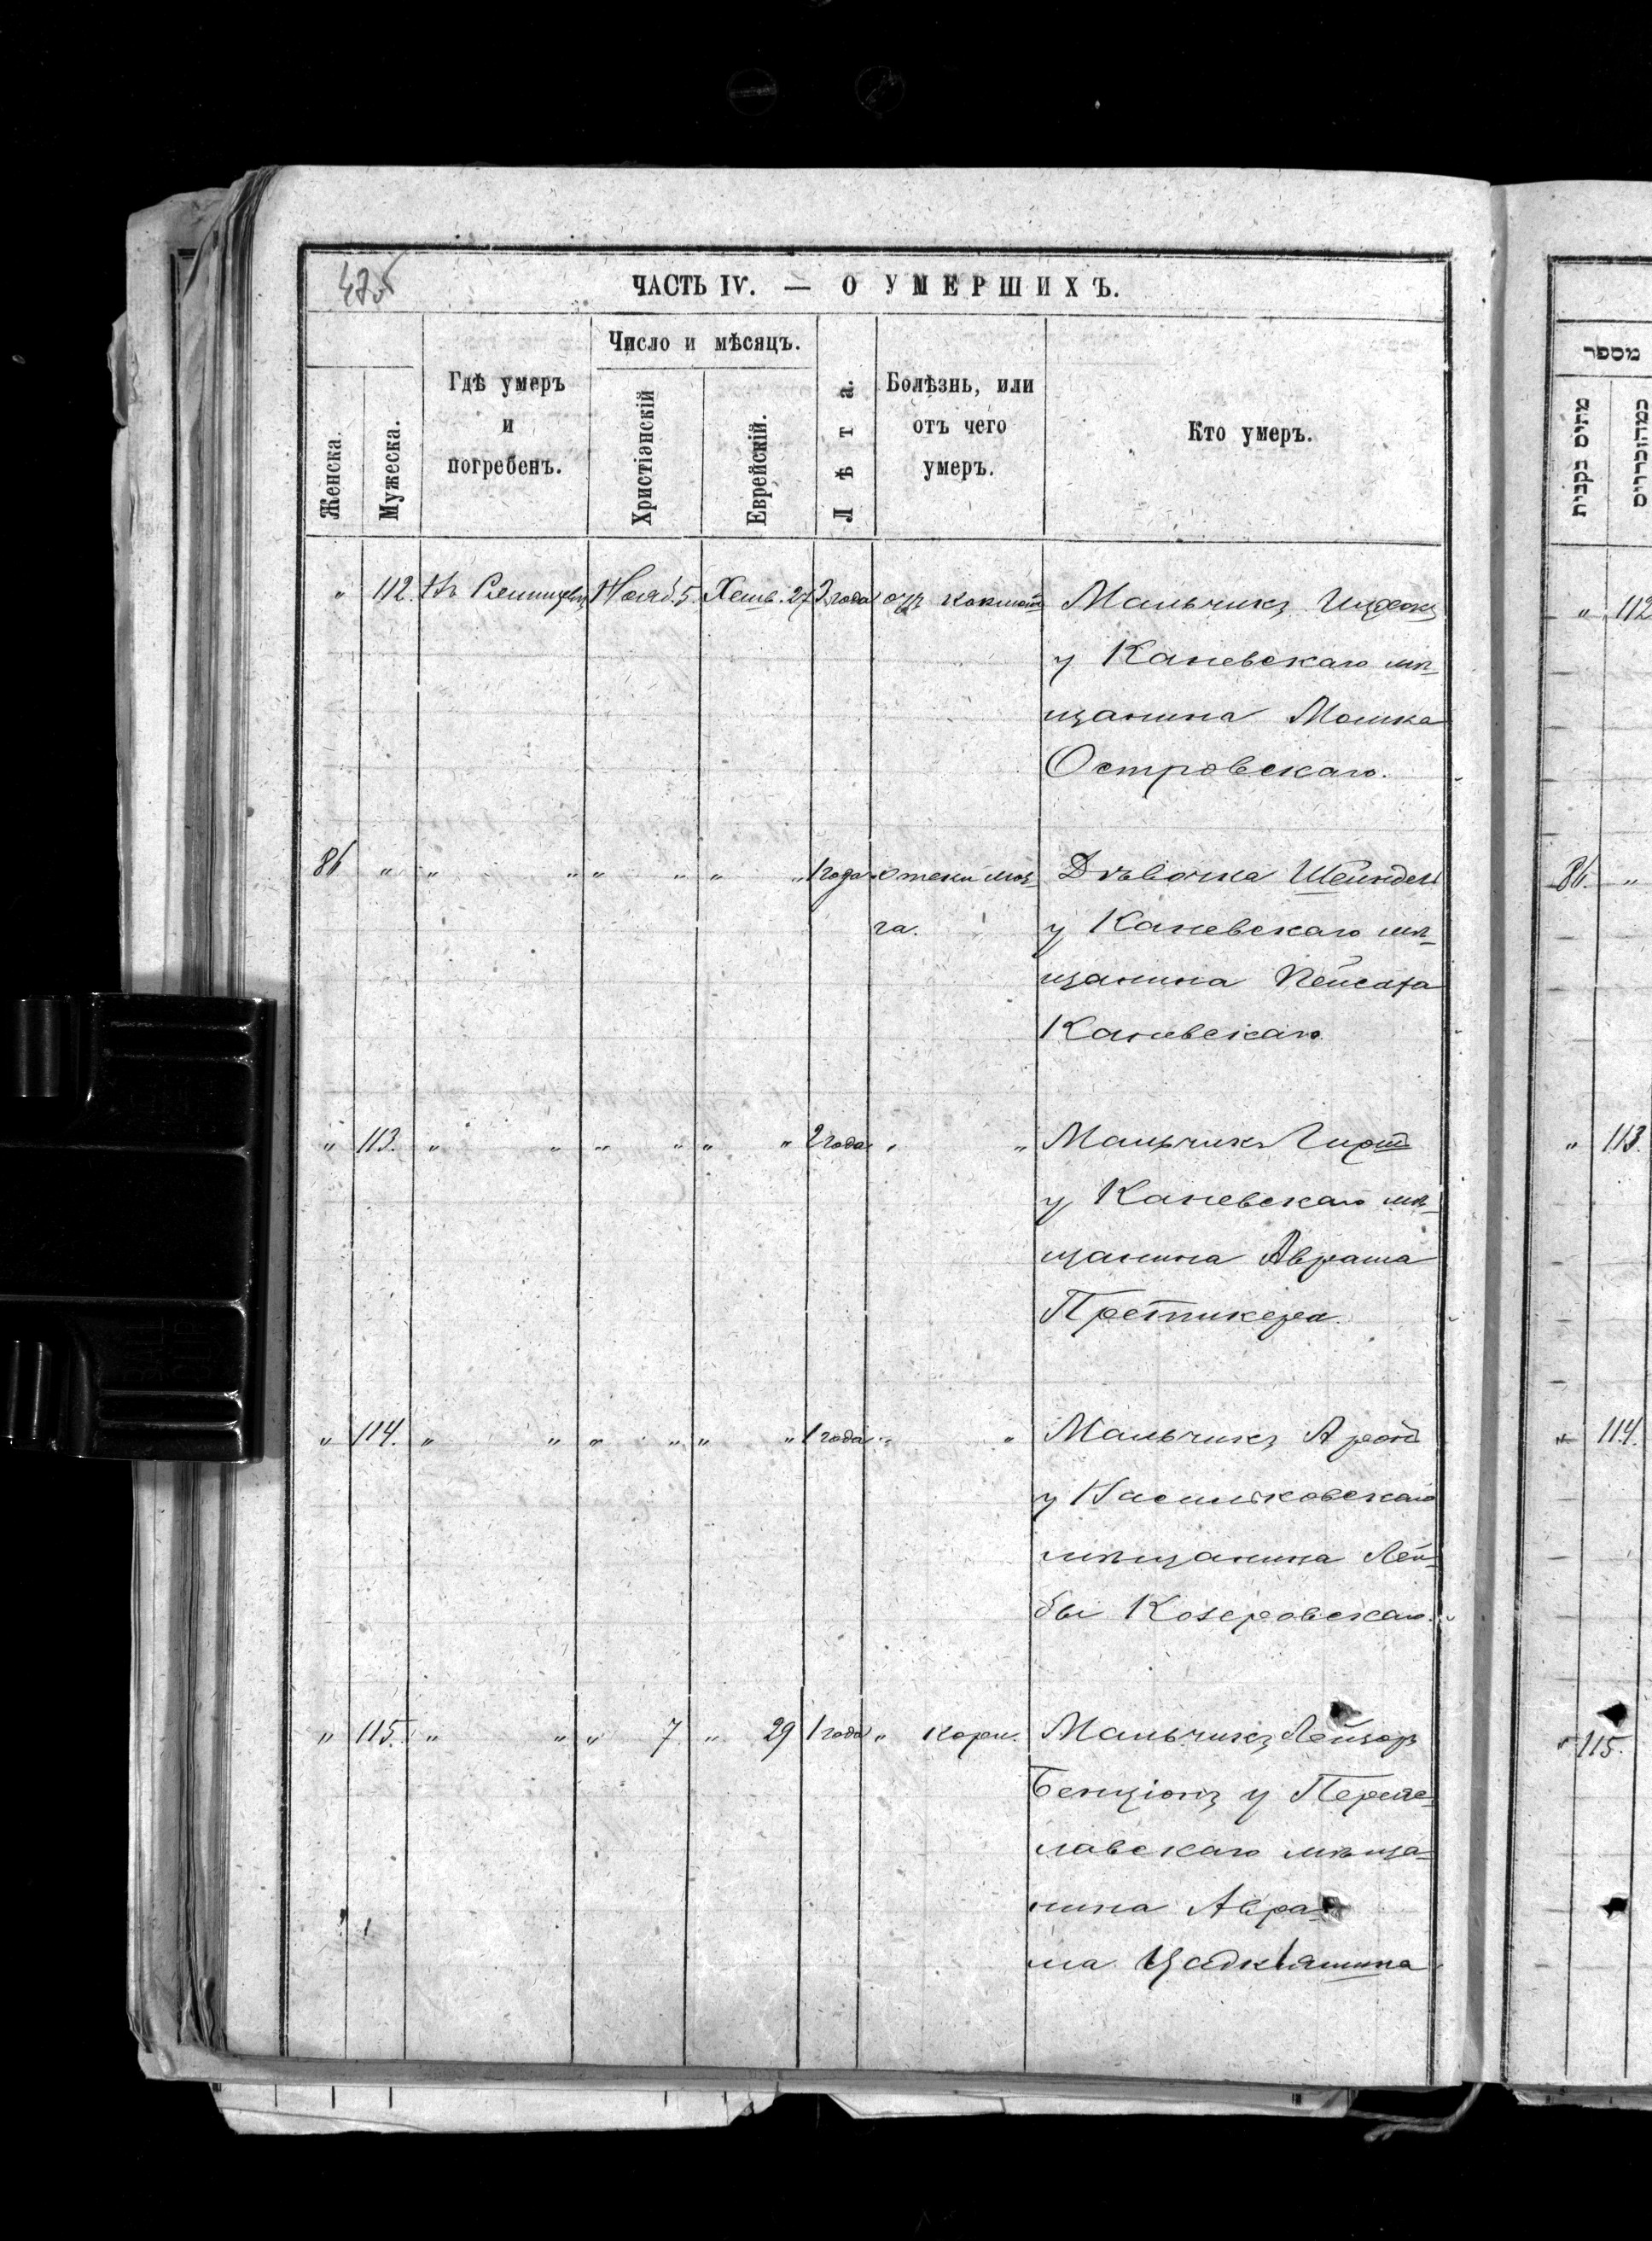 ЧАСТЬ IV. — О УМЕРШИХЪ.
Женска.
Мужеска.
Гдѣ умеръ
и
погребенъ.
Число и мѣсяцъ.
Христіанскій
Еврейскій.
Лѣта.
Болѣзнь, или
отъ чего
умеръ.
Кто умеръ.
" 112. Нояб. 5. Хешв. 27 года отъ Мальчикъ Ицхокъ
у Каневскаго мѣ-
щанина Мошка
Островскаго.
86 " " " " " " " 1 года отеки моз- Дѣвочка Шейндель
га. у Каневскаго мѣ-
щанина Пейсаха
Каневскаго
" 113. " " " " " " 2 года " " Мальчикъ Гирш
у Каневскаго мѣ-
щанина Аврама
" 114. " " " " " " 1 года " " Мальчикъ Арон
у Васильковскаго
мѣщанина Лей-
бы Козеровскаго.
" 115. " " " 7. " 29 1 года " кори. Мальчикъ Лейзоръ
Бенціонъ у Переяс-
лавскаго мѣща-
нина Авра-
ма
מספר
" 112
86. "
" 113.
" 114.
" 115.